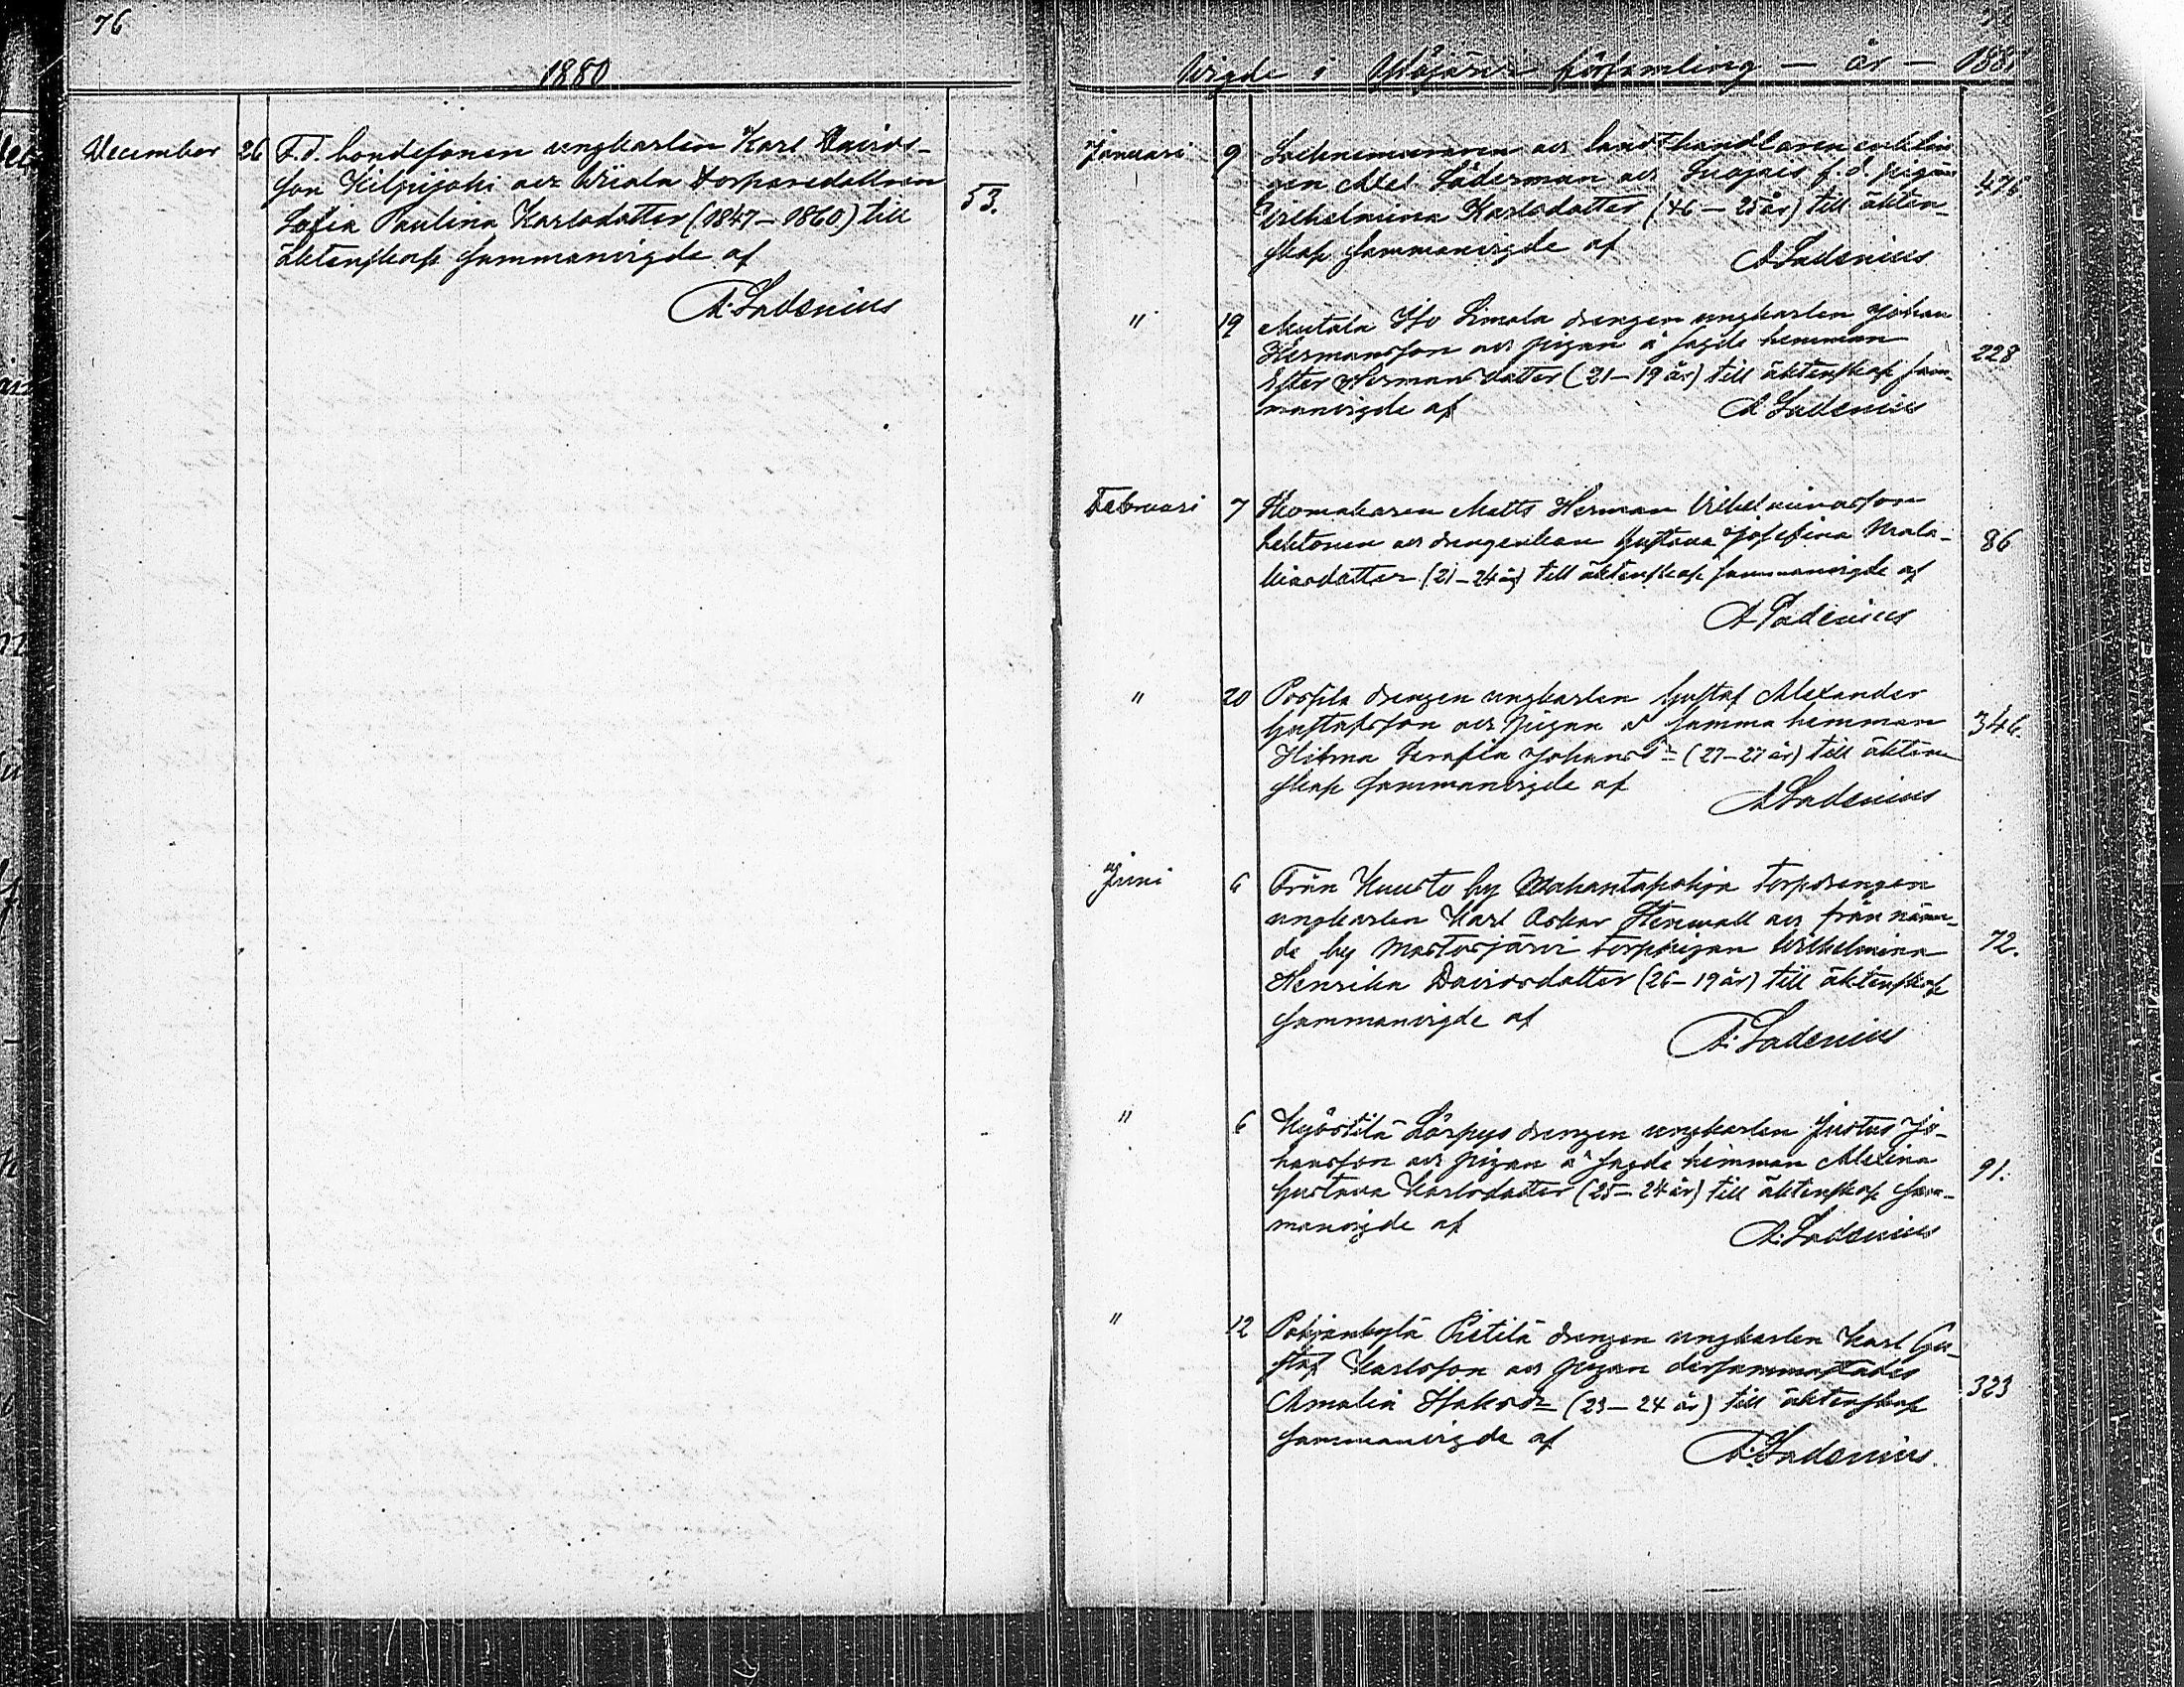 76
1880
December 26 F.d. bondesonen ungkarlen Karl Davids-
son Kilpijoki och Wiala torparedottren
Sofia Paulina Karlsdotter (1847–1860) till
äktenskap sammanvigde af
53.
A. Ladenius
Wigde i församling – år – 1881
Januari 9 och landthandlaren enklin-
gen Axel Söderman och f.d. pigan
Wilhelmina Karlsdotter (46–25 år) till äkten-
skap sammanvigde af
476
A Ladenius
" 19 Mutala Iso Simola drengen ungkarlen Johan
Hermansson och pigan å sagde hemman
Ester Hermansdotter (21–19 år) till äktenskap sam-
manvigde af
228
A Ladenius
Februari 7 Skomakaren Matts Herman Vilhelminasson
Lehtonen och drengeenkan Gustava Josefina Mala-
kiasdotter (21–24 år) till äktenskap sammanvigde af
86
A Ladenius
" 20 Possila drengen ungkarlen Gustaf Alexander
Gustafsson och pigan å samma hemman
Hilma Serafia Johansd:r (27–27 år) till äkten-
skap sammanvigde af
346.
A Ladenius
Juni 6 Från Kuusto by torpdrengen
ungkarlen Karl Oskar Stenwall och från nämn-
de by Mastosjärvi torppigan Wilhelmina
Henrika Davidsdotter (26–19 år) till äktenskap
sammanvigde af
72.
A. Ladenius
" 6 Kyöstilä Lörpys drengen ungkarlen Justus Jo-
hansson och pigan å sagde hemman Alexina
Gustava Karlsdotter (25–24 år) till äktenskap sam-
manvigde af
91.
A. Ladenius
" 12 Pohjankylä Pietilä drengen ungkarlen Karl Gu-
staf Karlsson och pigan dersammastädes
Amalia Isaksd:r (23–24 år) till äktenskap
sammanvigde af
323
A. Ladenius.